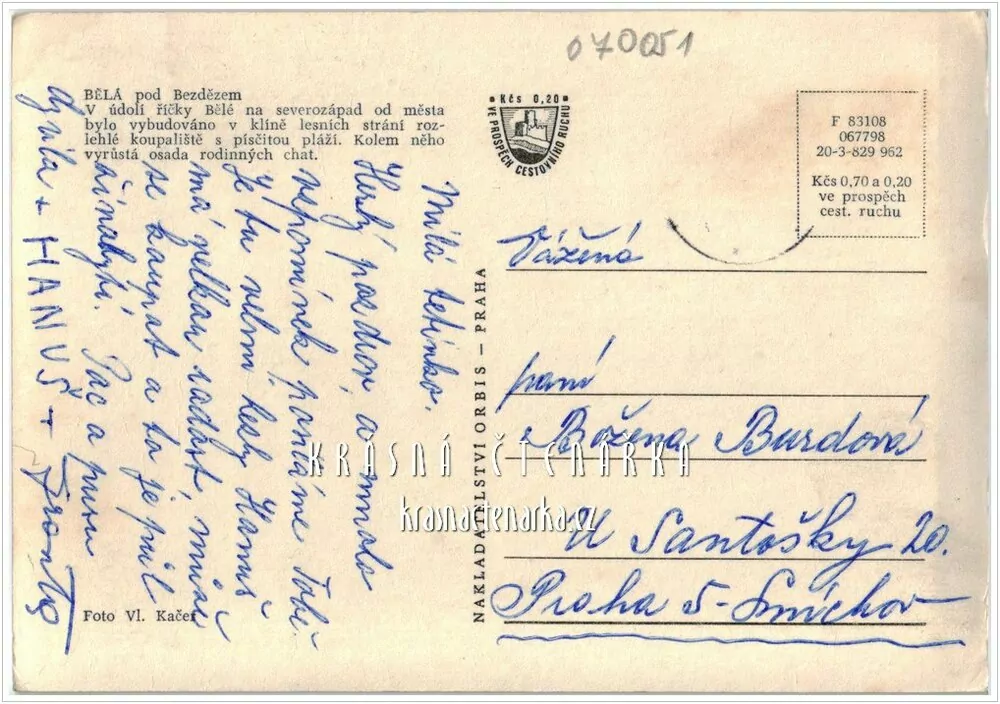 070051
BĚLÁ pod Bezdězem
V údolí říčky Bělé na severozápad od města
bylo vybudováno v klíně lesních strání roz-
lehlé koupaliště s písčitou pláží. Kolem něho
vyrůstá osada rodinných chat.
Kčs 0,20
VE PROSPĚCH CESTOVNÍHO RUCHU
F 83108
067798
20-3-829 962
Kčs 0,70 a 0,20
ve prospěch
cest. ruchu
Milá tetinko,
Hezký pozdrav a mnoho
vzpomínek posíláme Tobě.
Je tu velmi hezky Hanuš
má velkou radost, může
se koupat a to je
Pac a pusu
+ HANUŠ +
NAKLADATELSTVÍ ORBIS – PRAHA
Vážená
paní
Božena Burdová
U Santošky 20.
Praha 5-Smíchov
KRÁSNÁ ČTENÁŘKA
krasnactenarka.cz
Foto Vl. Kačer